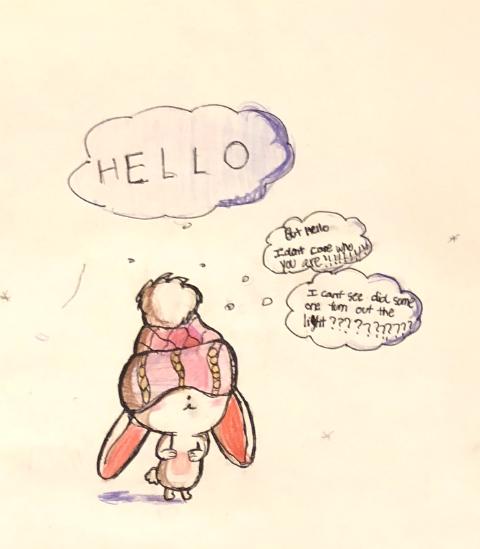 HELLO
But hello
I dont care who
you are!!!!!!!!
I cant see did some
one turn out the
light??????????